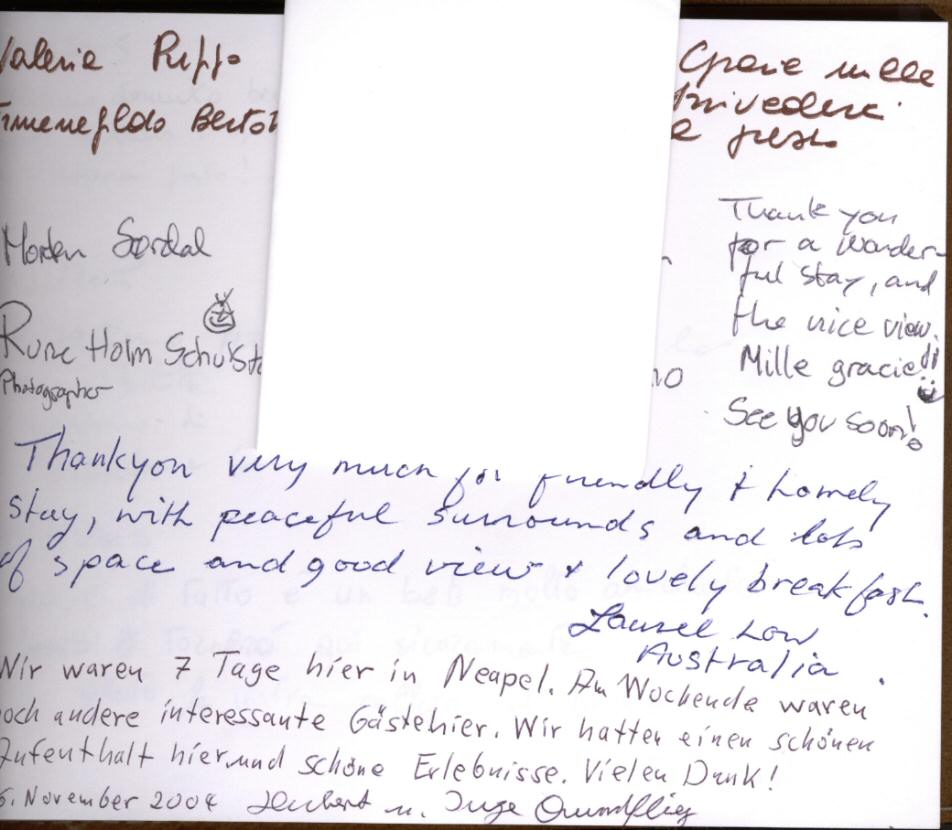 Valeria
Grazie mille
Arrivederci
e presto
Morten Sørdal
Rune Holm
Photographer
Thank you
for a wonder-
ful stay, and
the nice view.
Mille gracie!!
See you soon!
Thankyou very much for friendly & homely
stay, with peaceful surrounds and lots
of space and good views & lovely breakfast.
Laurel Low
Australia.
Wir waren 7 Tage hier in Neapel. Am Wochende waren
och andere interessante Gäste hier. Wir hatten einen schönen
Aufenthalt hier und schöne Erlebnisse. Vielen Dank!
6. November 2004 Herbert u. Inge